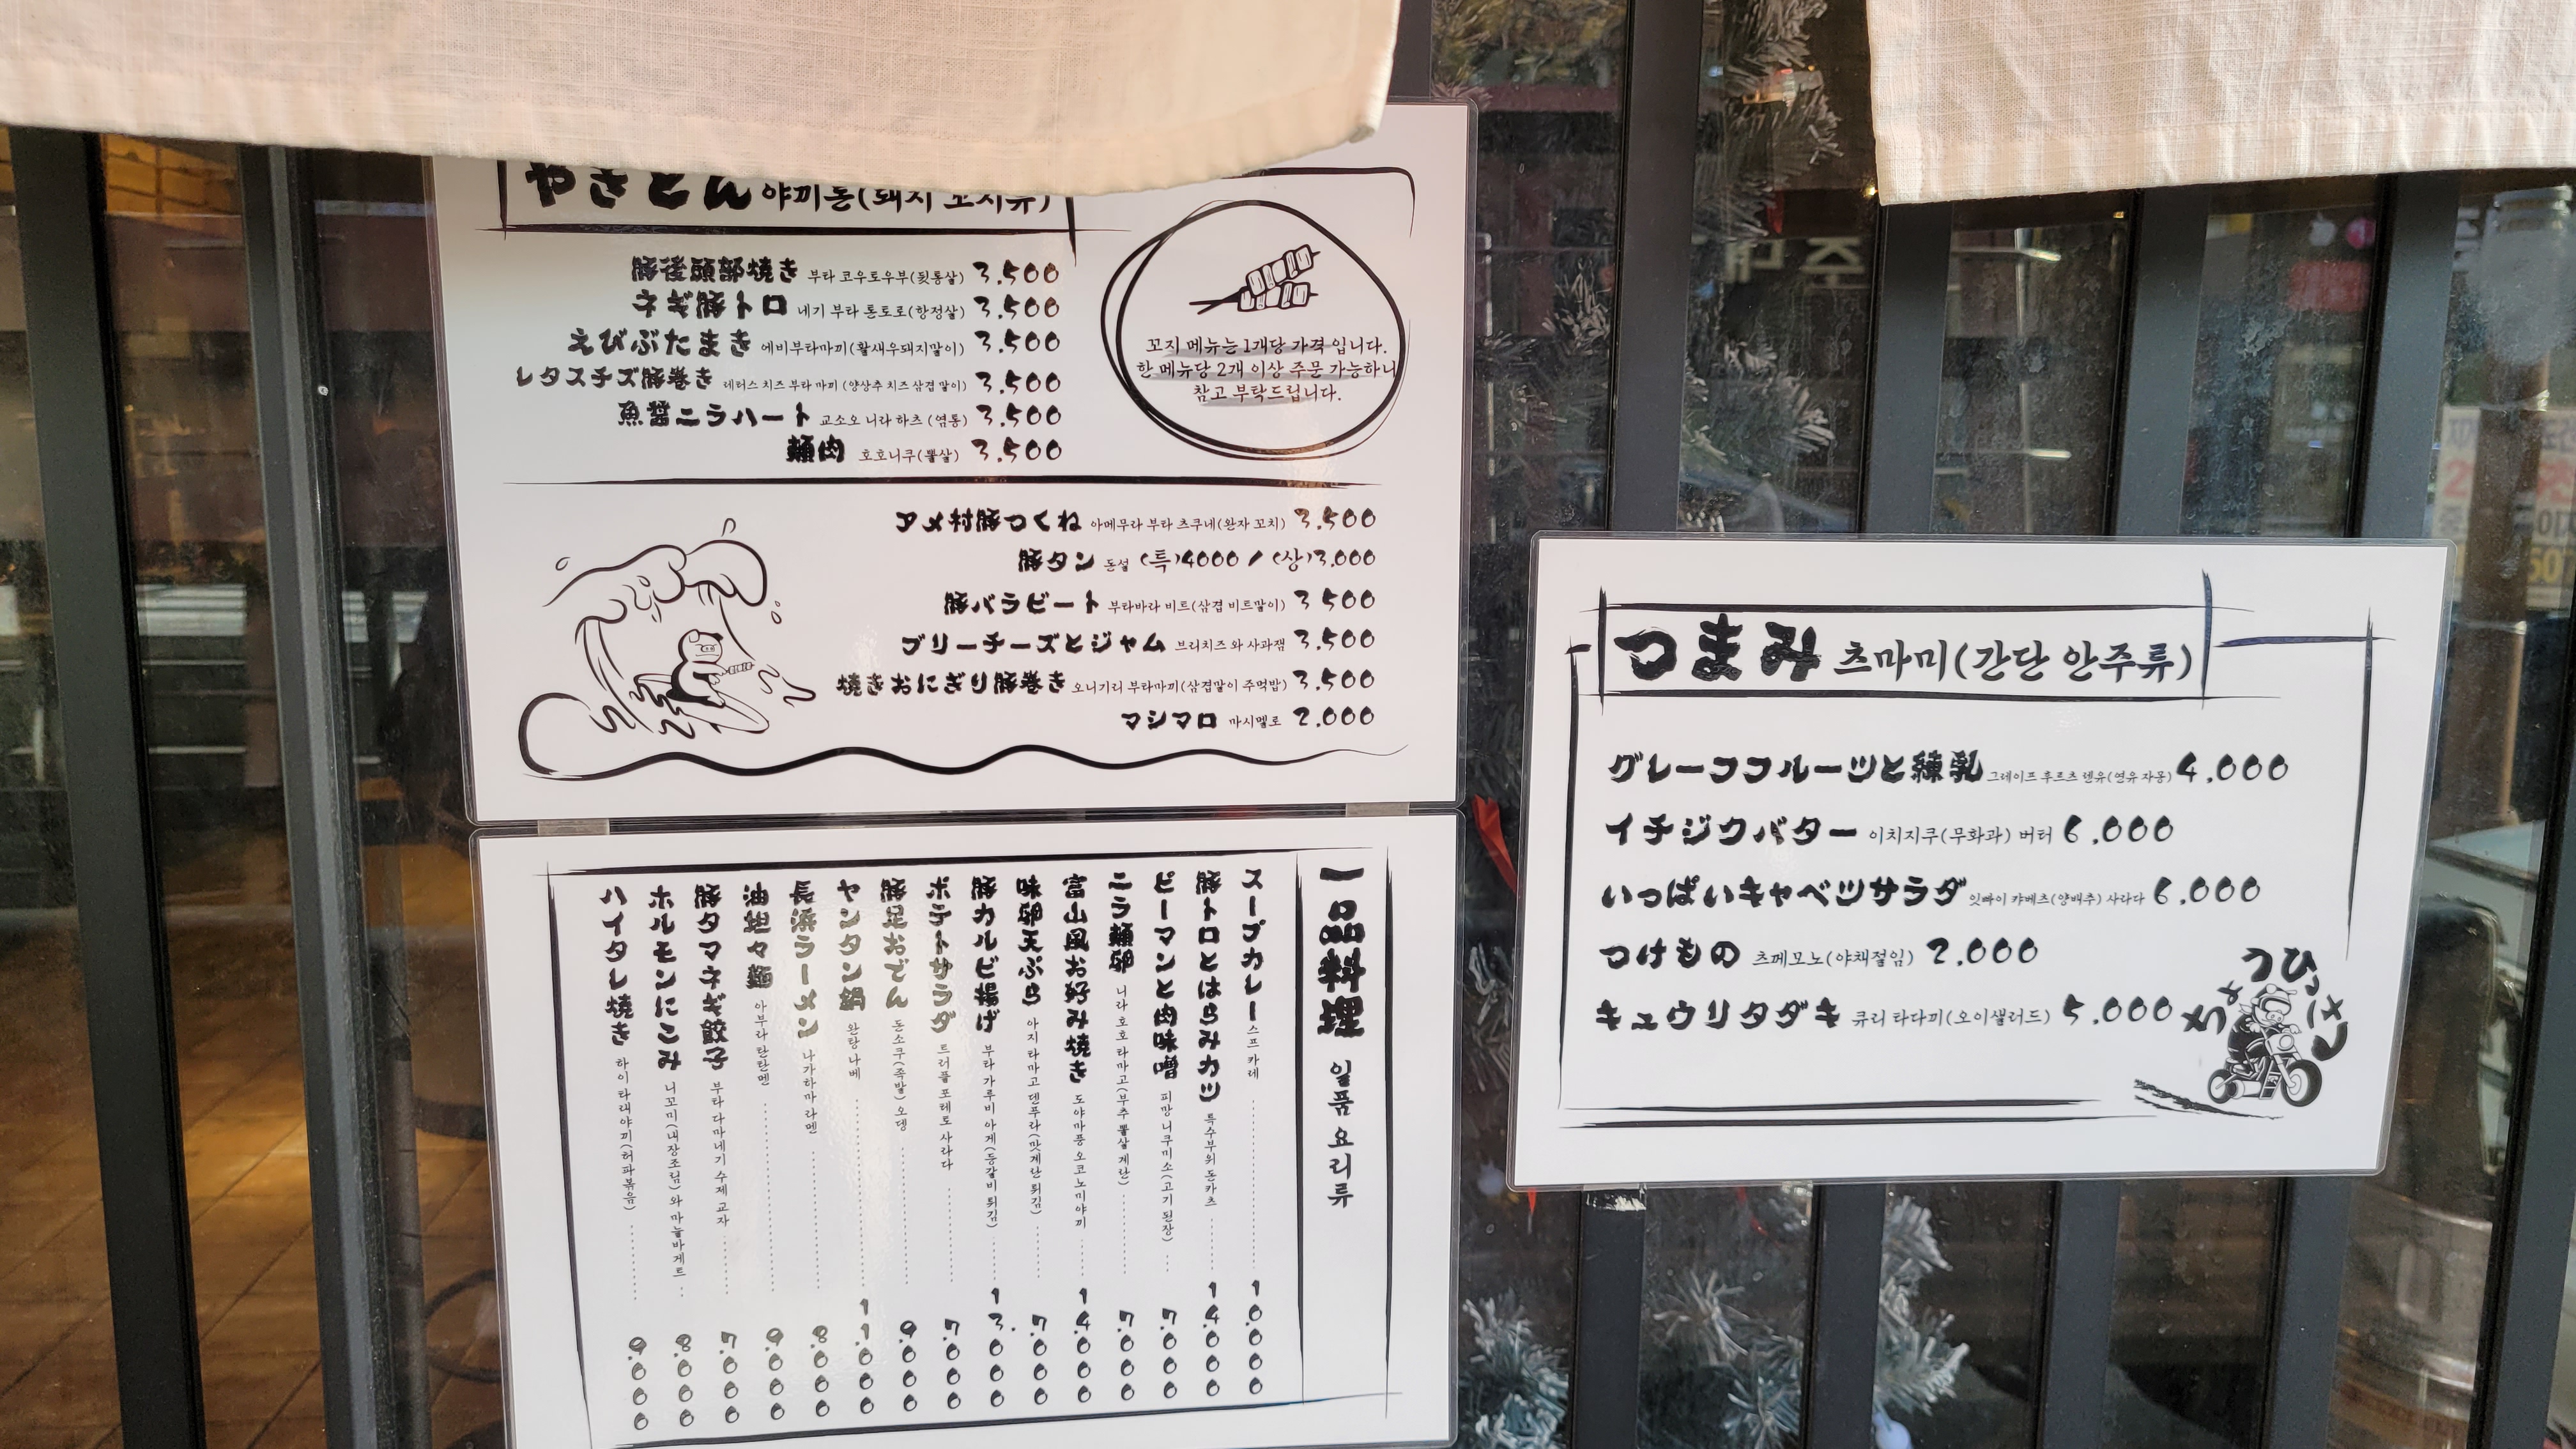 やきとん 야끼톤(돼지 꼬치류)
豚後頭部焼き 부타 코우토우부(뒷통살) 3.500
ネギ豚トロ 네기 부타 톤토로(항정살) 3.500
えびぶたまき 에비부타마끼(활새우돼지말이) 3.500
レタスチーズ豚巻き 레터스 치즈 부타 마끼 (양상추 치즈 삼겹 말이) 3.500
魚醤ニラハート 교소오 니라 하츠 (염통) 3.500
頬肉 호호니쿠(뽈살) 3.500
꼬지 메뉴는 1개당 가격 입니다.
한 메뉴당 2개 이상 주문 가능하니
참고 부탁드립니다.
アメ村豚つくね 아메무라 부타 츠쿠네(완자 꼬치) 3.500
豚タン 돈설 (특)4000 / (상)3.000
豚バラビート 부타바라 비트(삼겹 비트말이) 3 500
ブリーチーズとジャム 브리치즈 와 사과잼 3.500
焼きおにぎり豚巻き 오니기리 부타마끼(삼겹말이 주먹밥) 3.500
マシマロ 마시멜로 2.000
一品料理 일품 요리류
スープカレー 스프 카레 10.000
豚トロとはらみカツ 특수부위 돈카츠 14.000
ピーマンと肉味噌 피망 니쿠미소(고기 된장) 7.000
ニラ頬卵 니라 호호 타마고(부추 뽈살 계란) 7.000
富山風お好み焼き 도야마풍 오코노미야끼 14.000
味卵天ぷら 아지타마고 덴푸라(맛계란 튀김) 7.000
豚カルビ揚げ 부타 가루비 아게(등갈비 튀김) 13.000
ポテトサラダ 트러플 포테토 사라다 7.000
豚足おでん 돈소쿠(족발) 오뎅 9.000
ヤンタン鍋 완탕 나베 11.000
長浜ラーメン 나가하마 라멘 8.000
油坦々麺 아부라 탄탄멘 9.000
豚タマネギ餃子 부타 다마네기 수제 교자 7.000
ホルモンにこみ 니꼬미(내장조림) 와 마늘바게트 8.000
ハイタレ焼き 하이 타래야끼(허파볶음) 9.000
つまみ 츠마미(간단 안주류)
グレーフフルーツと練乳 그레이프 후르츠 렌유(연유 자몽) 4.000
イチジクバター 이치지쿠(무화과) 버터 6.000
いっぱいキャベツサラダ 잇빠이 캬베츠(양배추) 사라다 6.000
つけもの 츠께모노(야채절임) 2.000
キュウリタダキ 큐리 타다끼(오이샐러드) 5.000